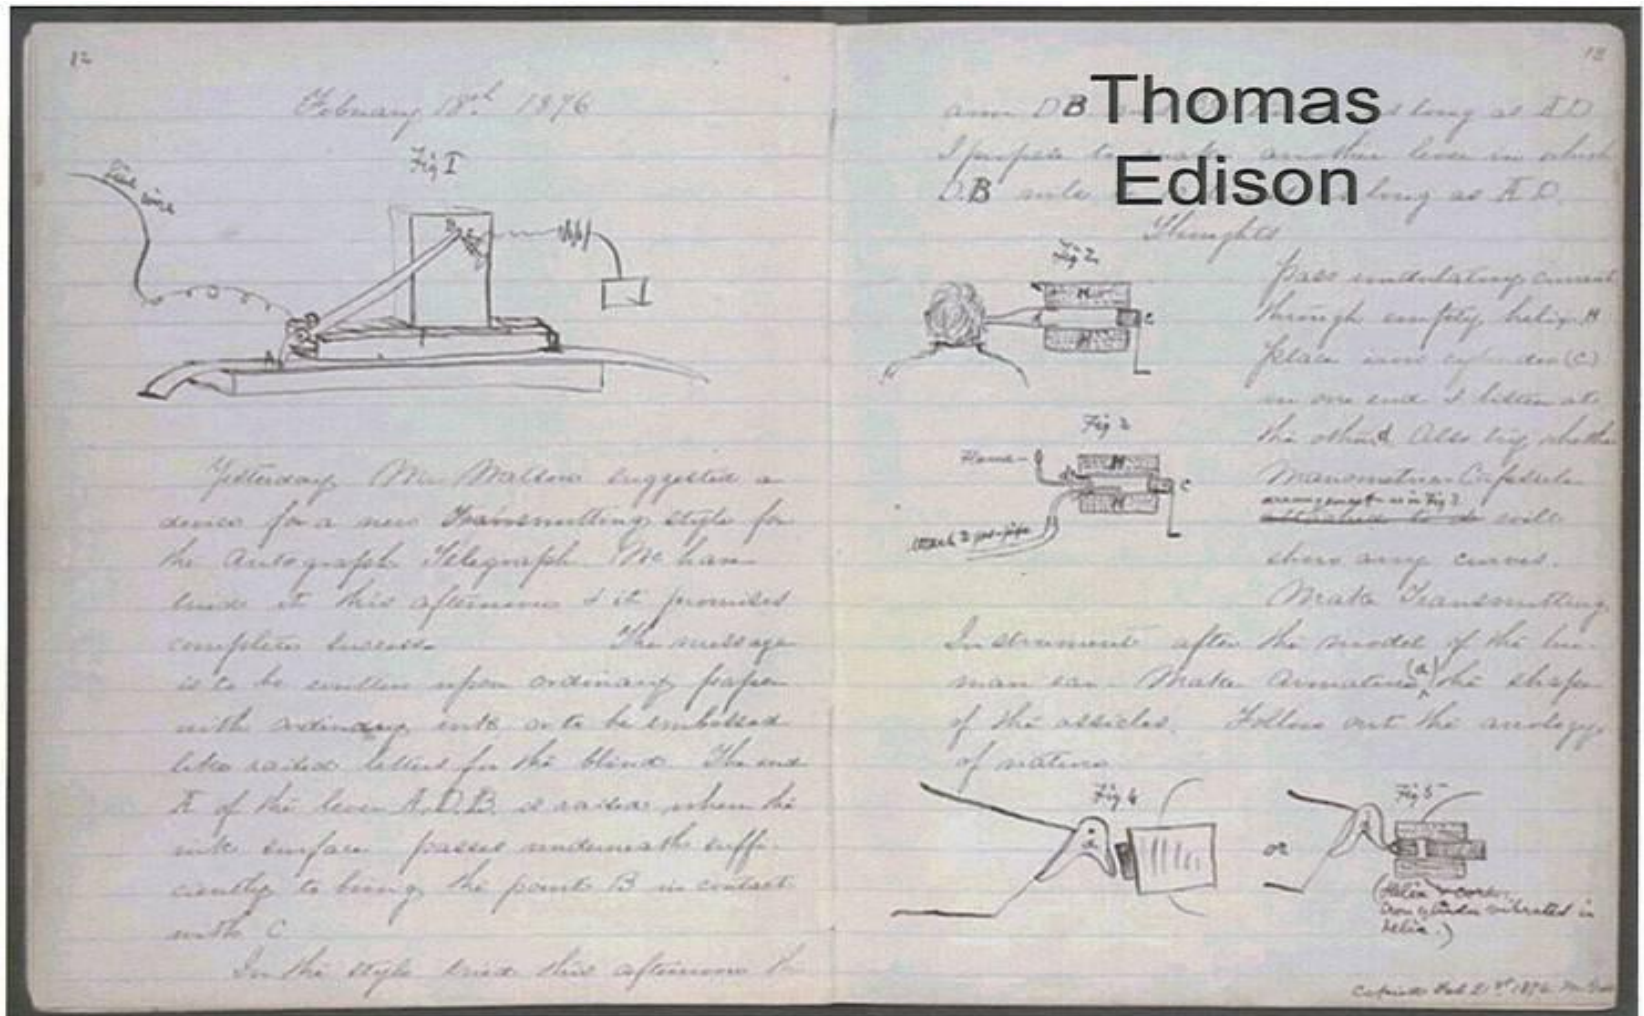 12
February 18th 1876
Fig 1
wire
A
Yesterday Mr Watson suggested a
device for a new Transmitting style for
the Autograph Telegraph. We have
tried it this afternoon & it promises
complete success. The message
is to be written upon ordinary paper
with ordinary ink or to be embossed
like raised letters for the blind. The end
A of the lever A.D.B. is raised when the
ink surface passes underneath suffi-
ciently to bring the point B in contact
with C
In the style tried this afternoon the
13
Thomas
Edison
arm DB as long as A D
I propose to make another lever in which
D.B long as A D.
Thoughts
Fig 2
H
C
pass undulating current
through empty helix H
place iron cylinder (C)
in one end & listen at
the other. Also try whether
Manometric Capsule
arrangement as in Fig 3
will
show any curves.
Fig 3
Flame
H
H
C
attach to gas-pipe
Make Transmitting
Instrument after the model of the hu-
man ear. Make Armature (a) the shape
of the ossicles. Follow out the analogy
of nature.
Fig 4
a
or
Fig 5
(Helix & core.
Iron cylinder vibrated in
helix.)
Copied Feb 21st 1876